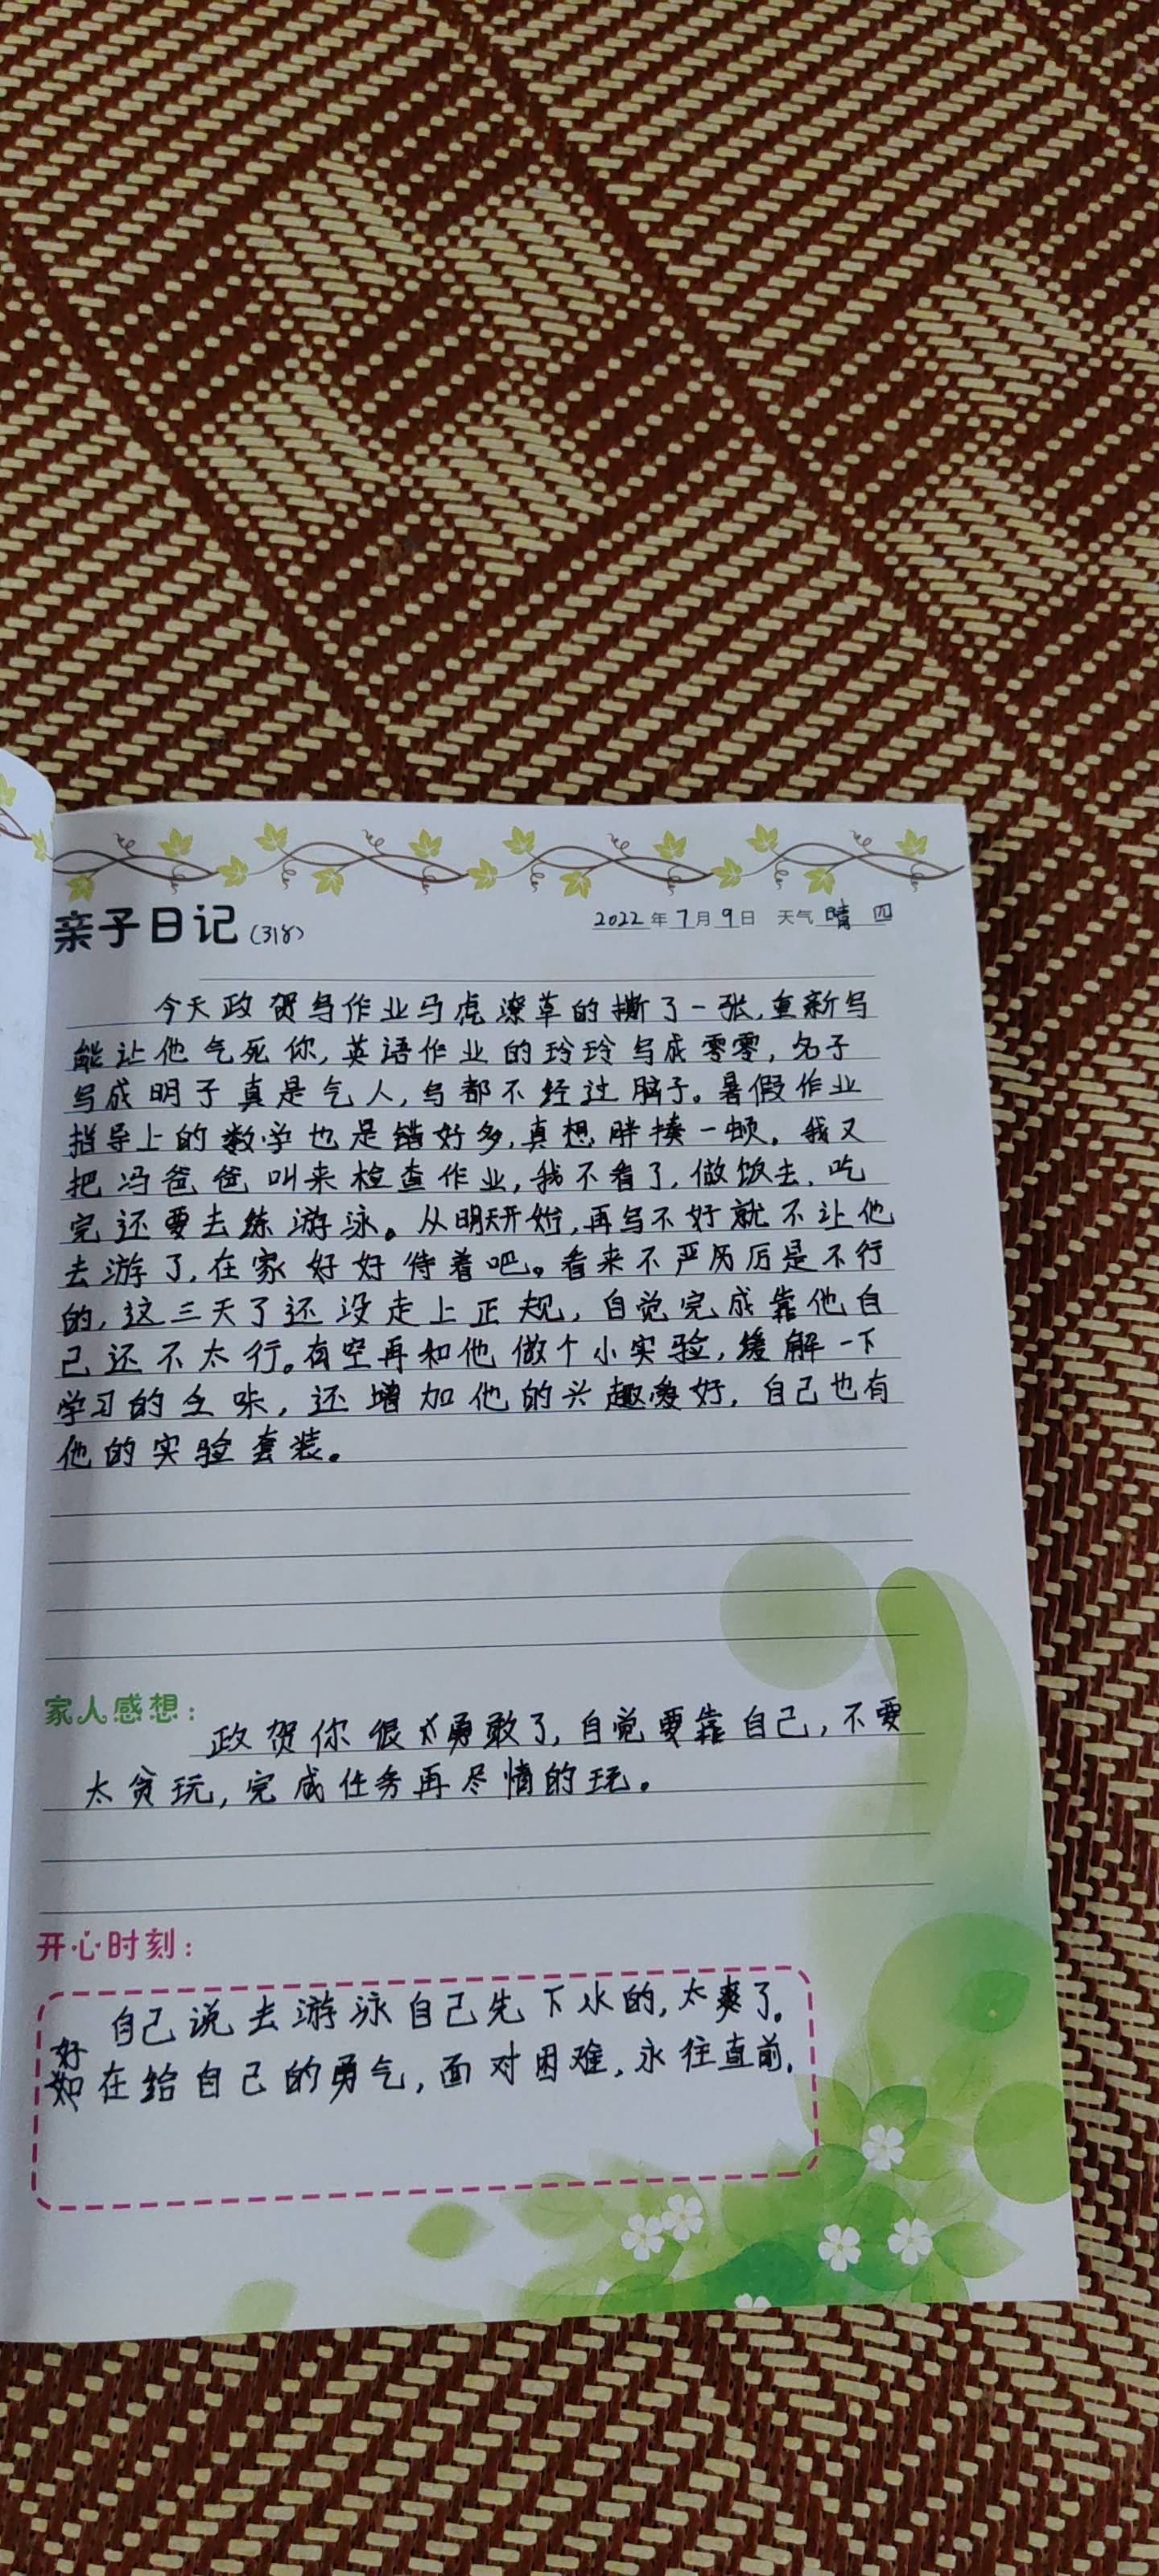 亲子日记(318) 2022年7月9日 天气 晴 四
今天政贺写作业马虎潦草的撕了一张,重新写
能让他气死你,英语作业的玲玲写成零零,名子
写成明子真是气人,写都不经过脑子。暑假作业
指导上的数学也是错好多,真想胖揍一顿。我又
把冯爸爸叫来检查作业,我不看了,做饭去,吃
完还要去练游泳。从明天开始,再写不好就不让他
去游了,在家好好待着吧。看来不严厉厉是不行
的,这三天了还没走上正规,自觉完成靠他自
己还不太行。有空再和他做个小实验,缓解一下
学习的乏味,还增加他的兴趣爱好,自己也有
他的实验套装。
家人感想:
政贺你很勇敢了,自觉要靠自己,不要
太贪玩,完成任务再尽情的玩。
开心时刻:
自己说去游泳自己先下水的,太爽了。
好
如在给自己的勇气,面对困难,永往直前,